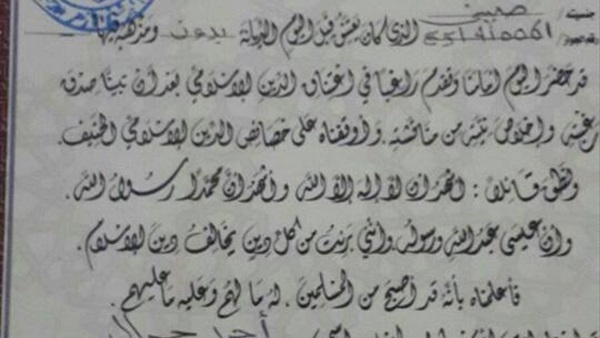 جنسيته : صيني
الذي كان يعتنق قبل اليوم الديانة بدون ومذهبه فيها
قد حضر اليوم أمامنا وتقدم راغبا في اعتناق الدين الإسلامي بعد أن تبينا صدق
رغبته وإخلاص نيته من مناقشته . وأوقفناه على خصائص الدين الإسلامي الحنيف .
ونطق قائلا : أشهد أن لا إله إلا الله وأشهد أن محمدا رسول الله .
وأن عيسى عبد الله ورسوله وأنني برئت من كل دين يخالف دين الإسلام .
فأعلمناه بأنه قد أصبح من المسلمين . له ما لهم وعليه ما عليهم .